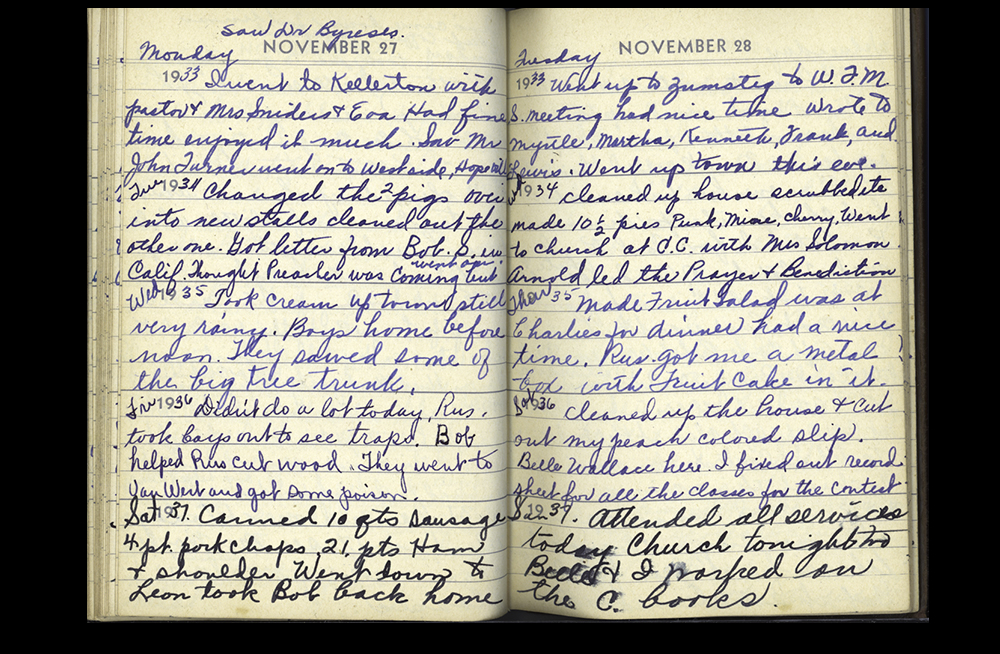 Saw Dr Byreses.
NOVEMBER 27
Monday
1933 I went to Kellerton with
pastor & Mrs Sniders & Eva Had fine
time enjoyed it much. Saw Mr
John Turner went on to Westside, Hopewell
Tue 1934 Changed the 2 pigs over
into new stalls cleaned out the
other one. Got letter from Bob. S. in
Calif. Thought Preacher was Coming but
went on.
Wed 1935 Took cream up town still
very rainy. Boys home before
noon. They sawed some of
the big tree trunk.
Fri 1936 Didn't do a lot today, Rus.
took boys out to see traps. Bob
helped Rus cut wood. They went to
Van Wert and got some poison.
Sat 1937. Canned 10 qts sausage
4 pt. pork chops, 21 pts Ham
& shoulder Went down to
Leon took Bob back home
NOVEMBER 28
Tuesday
1933 Went up to Zumsteg to W. F. M.
S. meeting had nice time Wrote to
Myrtle, Martha, Kenneth, Frank, and
Lewis. Went up town this eve.
1934 cleaned up house scrubbed etc
made 10 1/2 pies Punk, Mince, Cherry. Went
to church at C.C. with Mrs Solomon
Arnold led the Prayer & Benediction
Thur 35 Made Fruit Salad was at
Charlies for dinner had a nice
time. Rus. got me a metal
box with Fruit Cake in it.
Sat 1936 cleaned up the house & Cut
out my peach colored slip.
Belle Wallace here. I fixed out record
sheet for all the classes for the contest
Sun 1937. Attended all services
today Church tonight too
Belle & I worked on
the C. books.